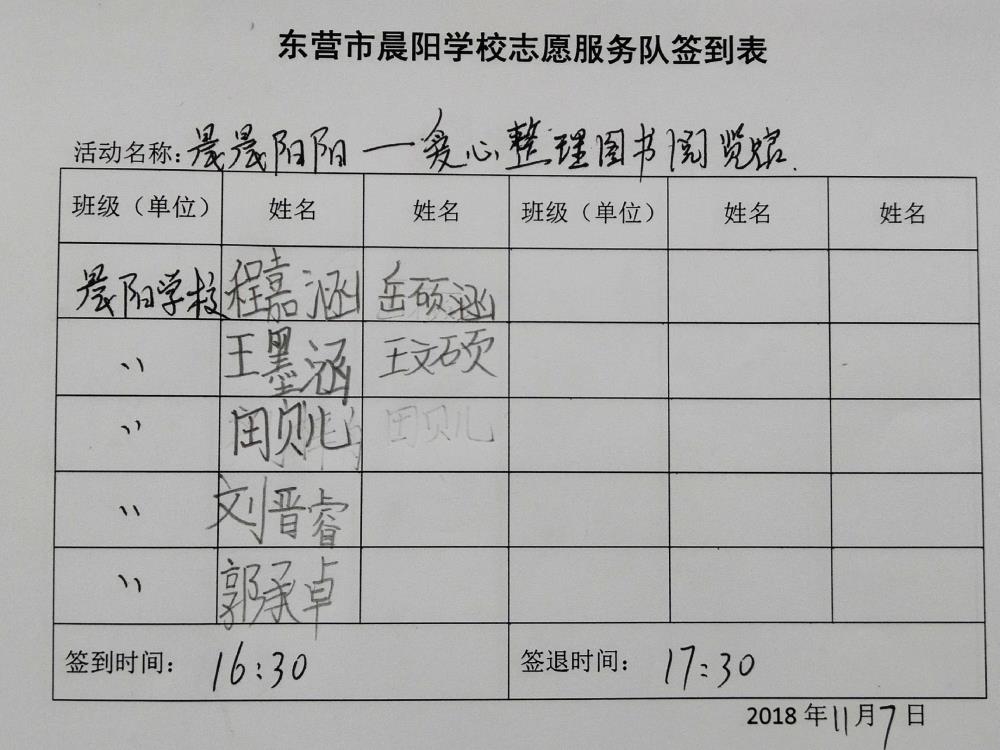 东营市晨阳学校志愿服务队签到表
活动名称:晨晨阳阳一爱心整理图书阅览馆.
班级（单位） 姓名 姓名 班级（单位） 姓名 姓名
晨阳学校 程嘉涵 岳硕涵
〃 王墨涵 王文硕
〃 田贝儿 田贝儿
〃 刘晋睿
〃 郭承卓
签到时间： 16:30 签退时间： 17:30
2018年11月7日